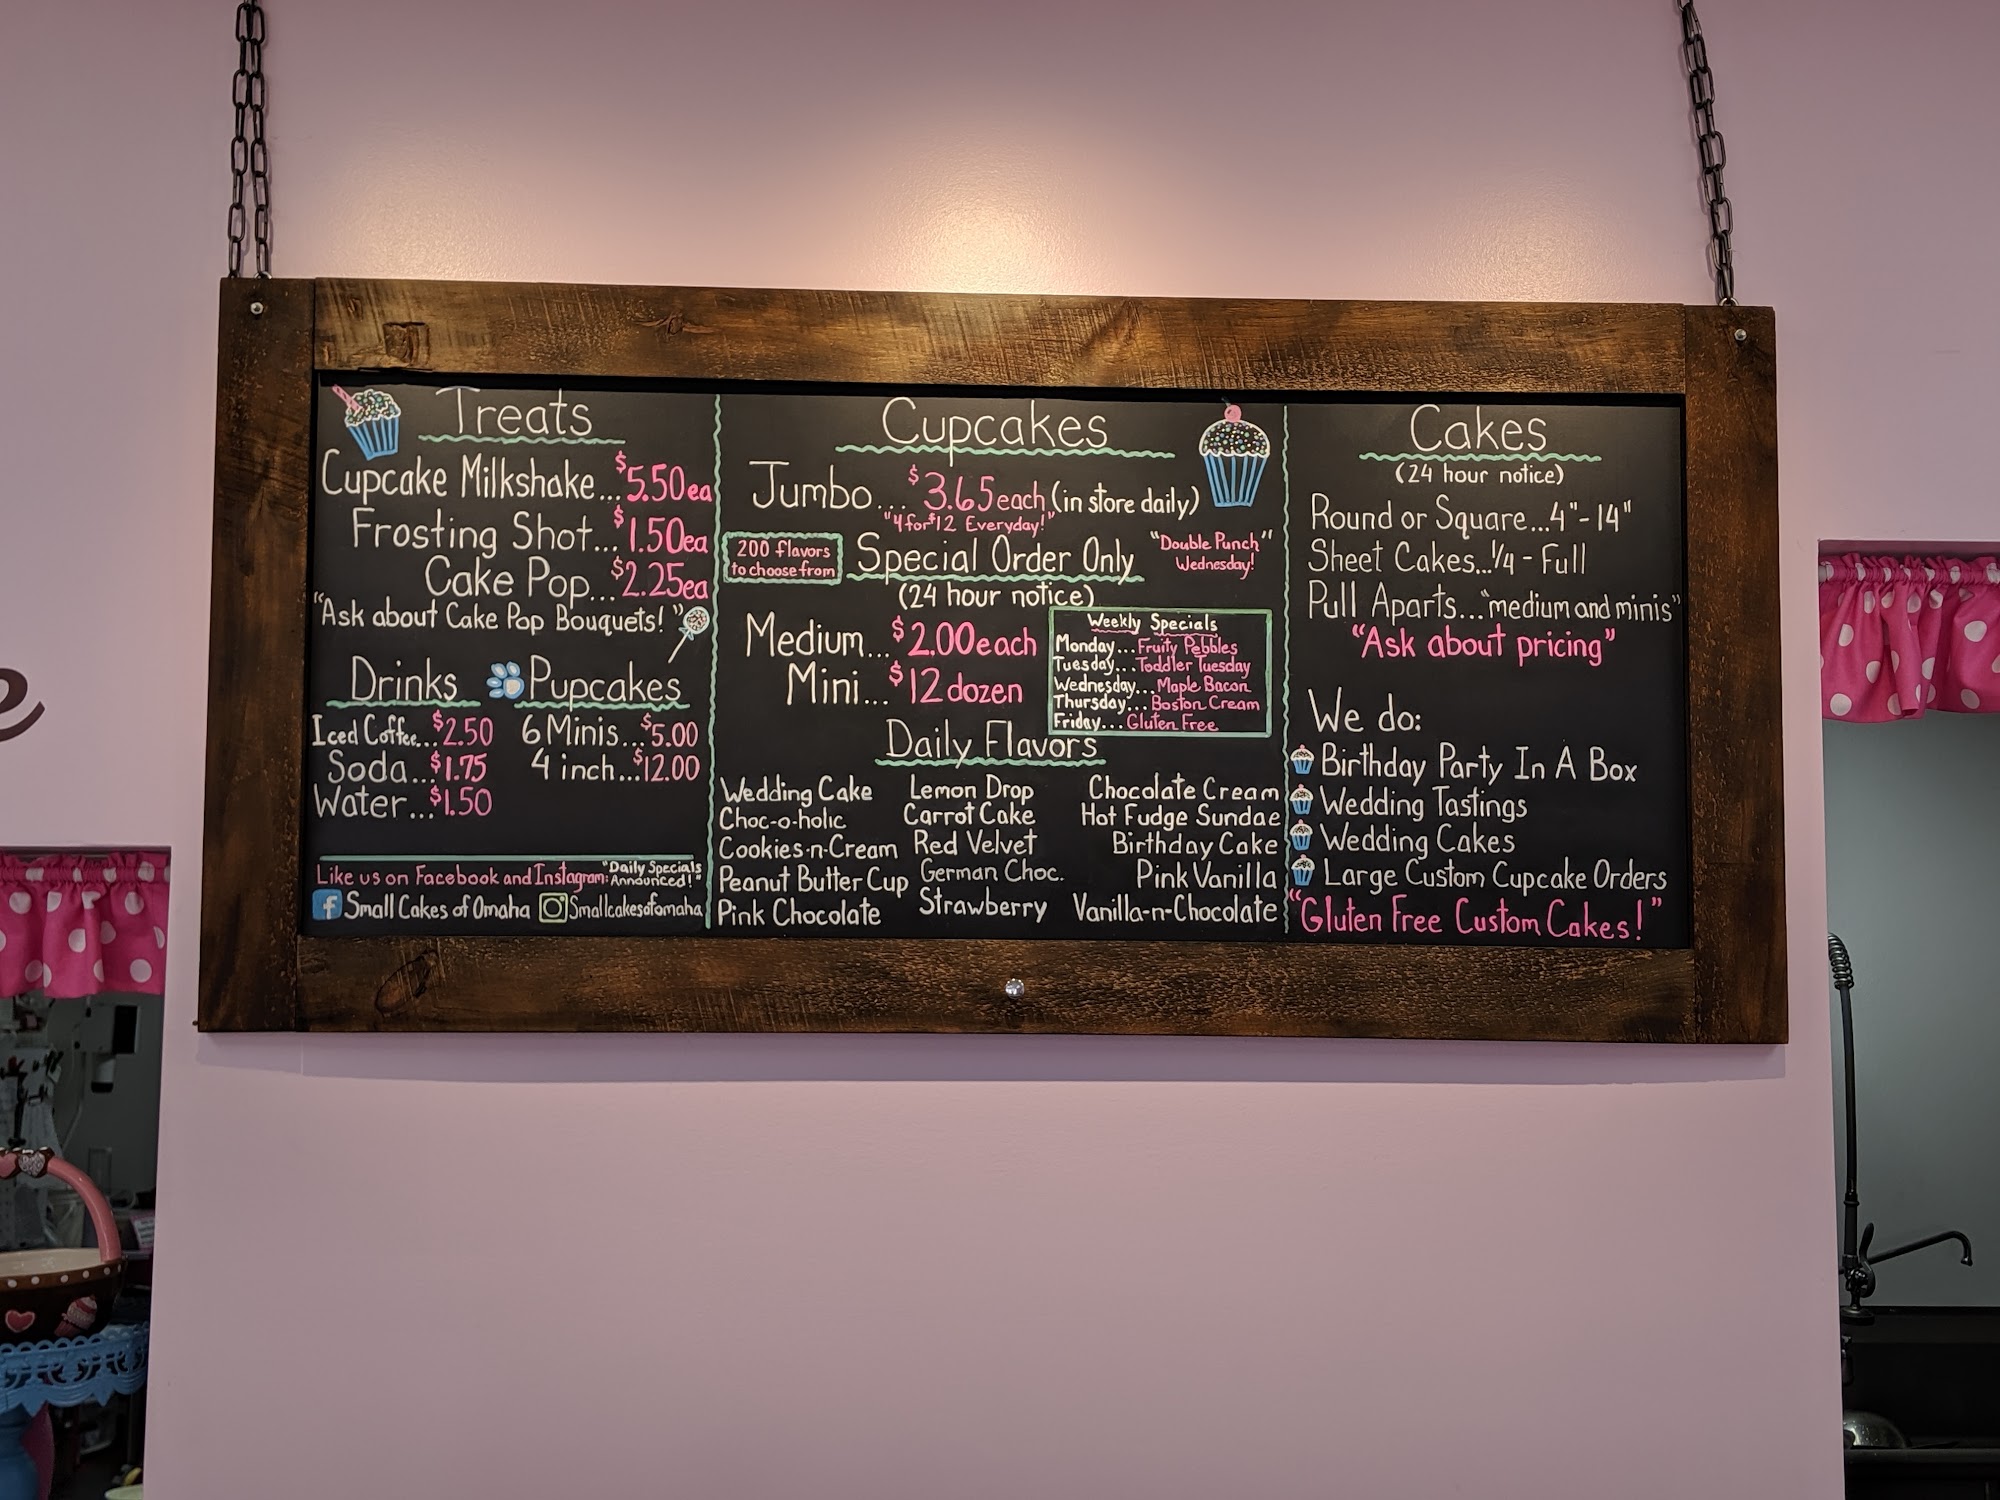 Treats
Cupcake Milkshake...$5.50ea
Frosting Shot...$1.50ea
Cake Pop...$2.25ea
"Ask about Cake Pop Bouquets!"
Drinks
Iced Coffee...$2.50
Soda...$1.75
Water...$1.50
Pupcakes
6 Minis...$5.00
4 inch...$12.00
Like us on Facebook and Instagram: "Daily Specials Announced!"
f Small Cakes of Omaha Smallcakesofomaha
Cupcakes
Jumbo...$3.65 each (in store daily)
"4 for $12 Everyday!"
200 flavors
to choose from
Special Order Only
(24 hour notice)
"Double Punch"
Wednesday!
Medium...$2.00 each
Mini...$12 dozen
Weekly Specials
Monday...Fruity Pebbles
Tuesday...Toddler Tuesday
Wednesday...Maple Bacon
Thursday...Boston Cream
Friday...Gluten Free
Daily Flavors
Wedding Cake
Choc-o-holic
Cookies-n-Cream
Peanut Butter Cup
Pink Chocolate
Lemon Drop
Carrot Cake
Red Velvet
German Choc.
Strawberry
Chocolate Cream
Hot Fudge Sundae
Birthday Cake
Pink Vanilla
Vanilla-n-Chocolate
Cakes
(24 hour notice)
Round or Square...4"-14"
Sheet Cakes...1/4 - Full
Pull Aparts..."medium and minis"
"Ask about pricing"
We do:
Birthday Party In A Box
Wedding Tastings
Wedding Cakes
Large Custom Cupcake Orders
"Gluten Free Custom Cakes!"
e